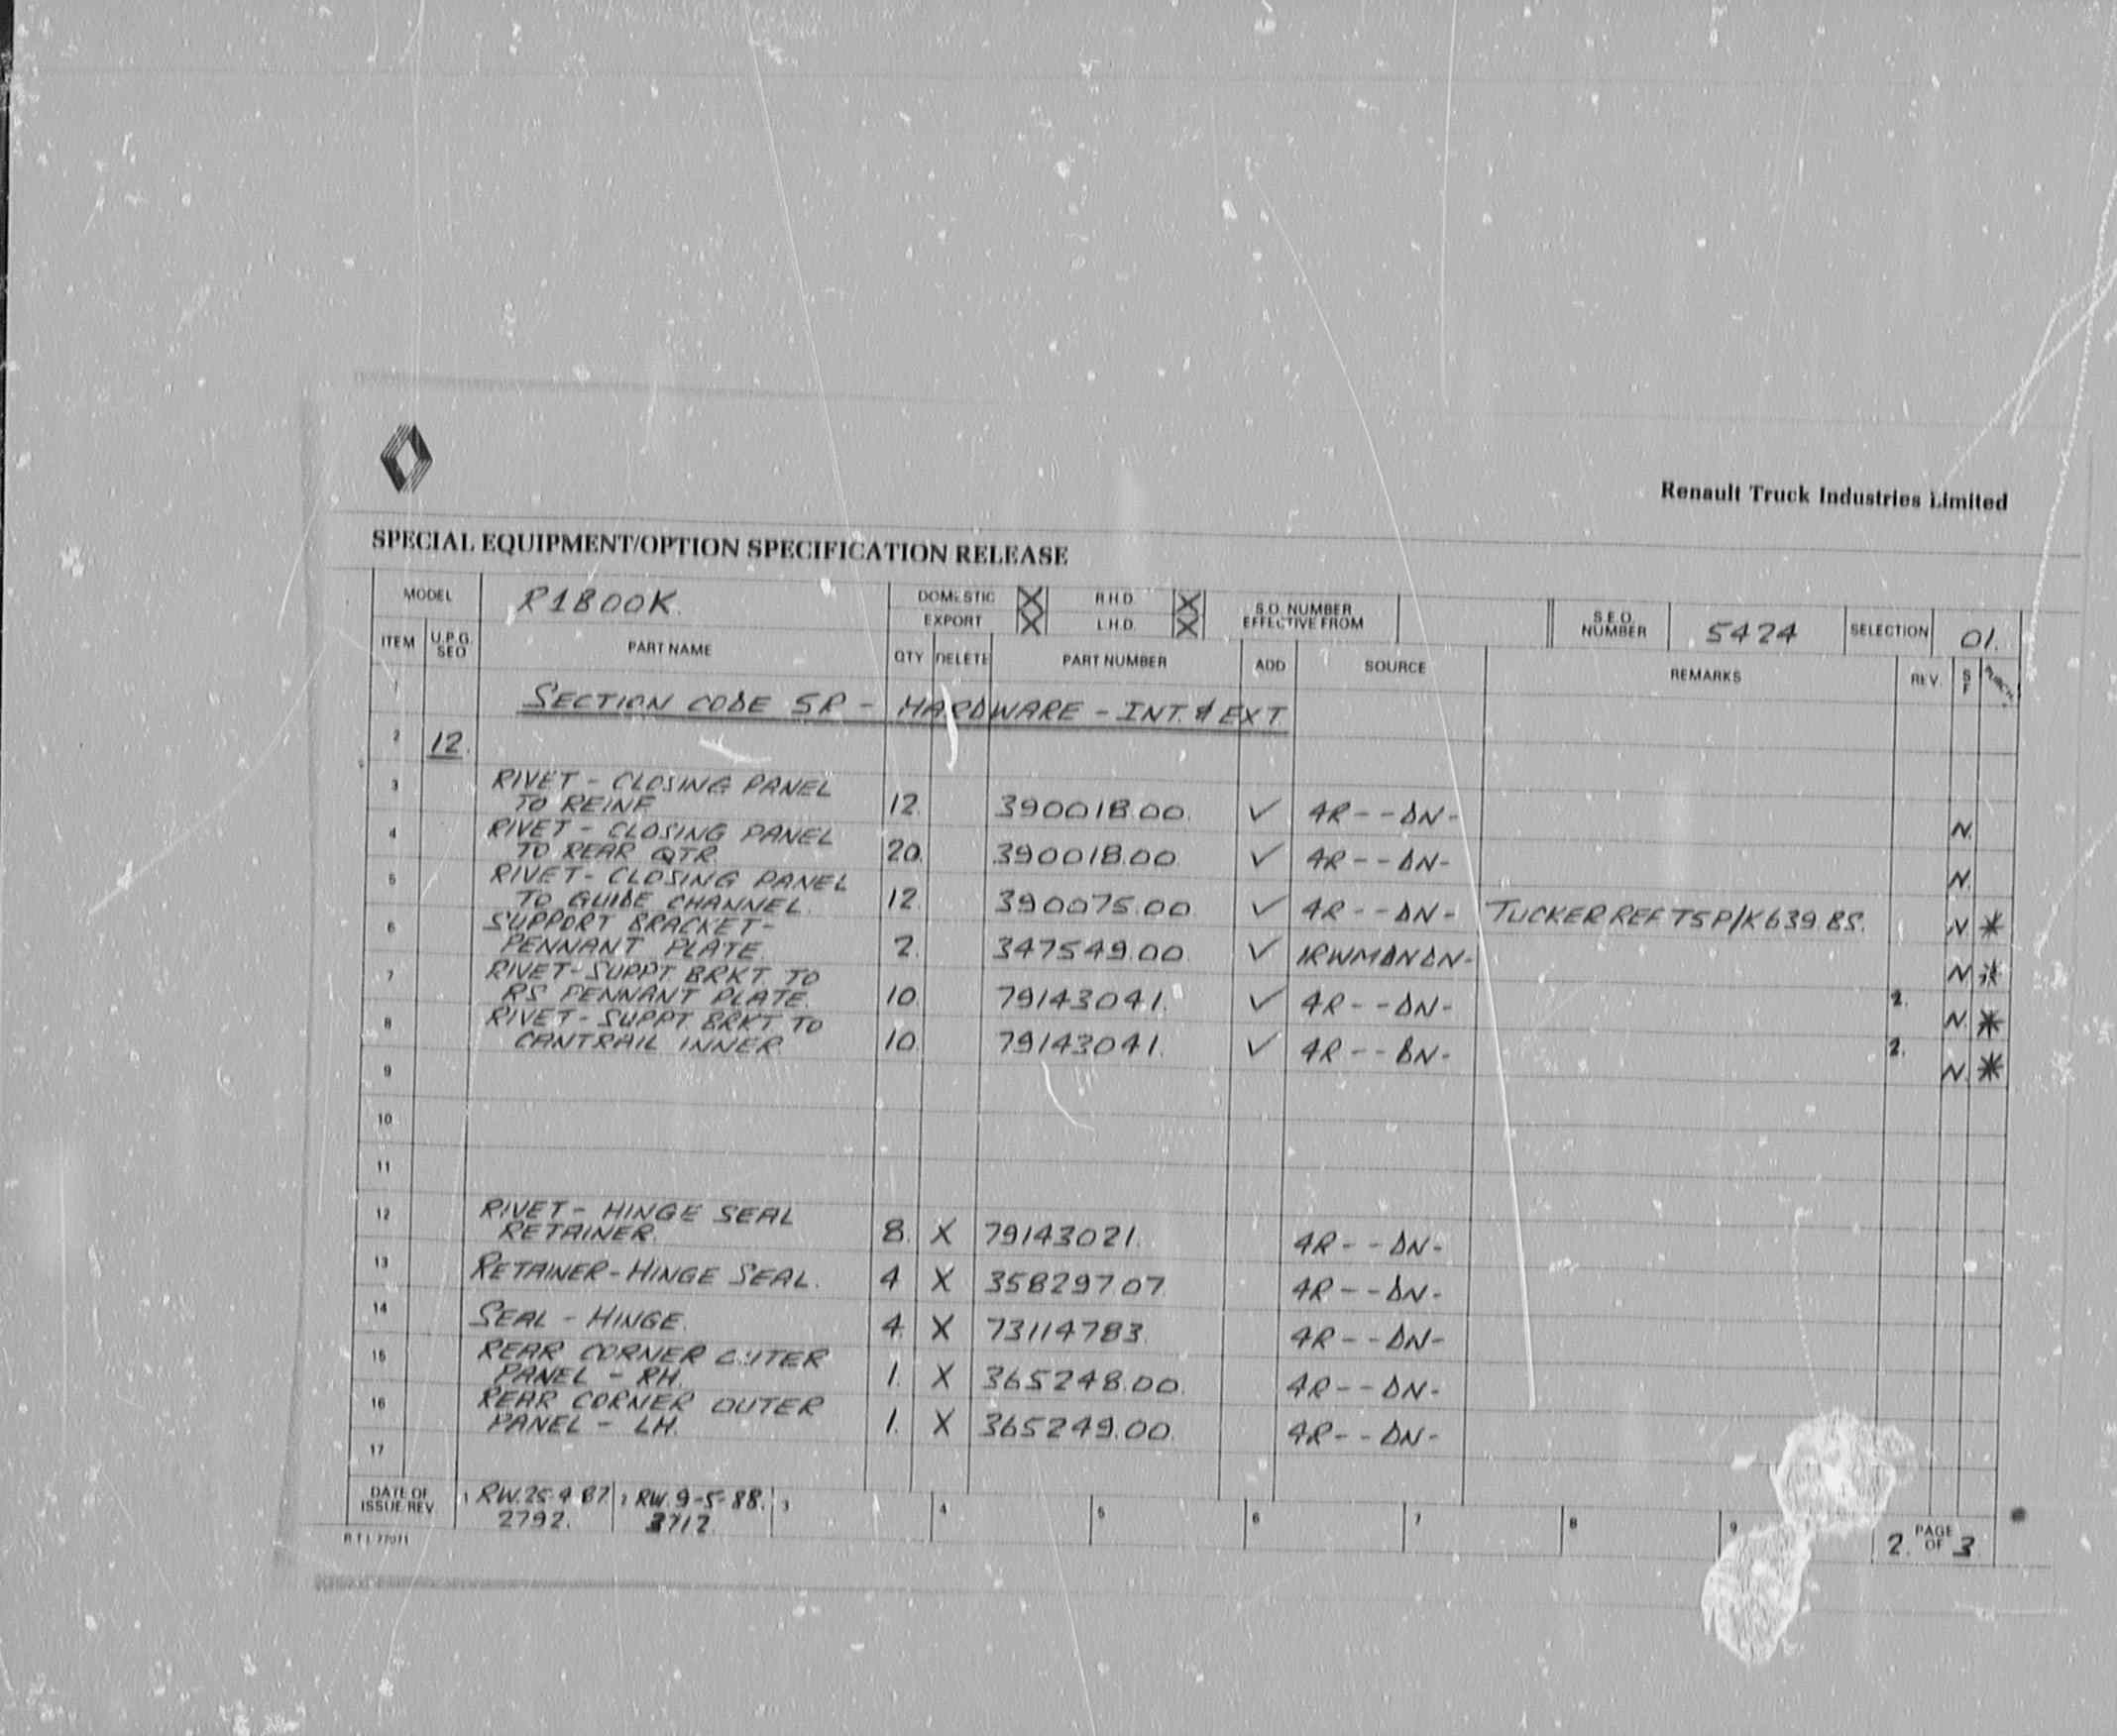 Renault Truck Industries Limited
SPECIAL EQUIPMENT/OPTION SPECIFICATION RELEASE
MODEL R1800K. DOMESTIC X R.H.D. X S.O. NUMBER EFFECTIVE FROM S.E.O. NUMBER 5424 SELECTION 01.
EXPORT X L.H.D. X
ITEM U.P.G. SEO PART NAME QTY DELETE PART NUMBER ADD SOURCE REMARKS REV. S F
1 SECTION CODE 5R - HARDWARE - INT. & EXT
2 12.
3 RIVET - CLOSING PANEL
TO REINF. 12. 390018.00. ✓ 4R--DN- N.
4 RIVET - CLOSING PANEL
TO REAR QTR. 20. 390018.00 ✓ 4R--DN- N.
5 RIVET - CLOSING PANEL
TO GUIDE CHANNEL. 12. 390075.00 ✓ 4R--DN- TUCKER REF TSP/K639 BS. N *
6 SUPPORT BRACKET -
PENNANT PLATE. 2. 347549.00 ✓ 1RWMDNDN- N *
7 RIVET-SUPPT BRKT. TO
RS PENNANT PLATE. 10. 79143041. ✓ 4R--DN- 2. N. *
8 RIVET - SUPPT. BRKT TO
CANTRAIL INNER 10. 79143041. ✓ 4R--DN- 2. N. *
9
10
11
12 RIVET - HINGE SEAL
RETAINER. 8. X 79143021. 4R--DN-
13 RETAINER-HINGE SEAL. 4 X 358297 07. 4R--DN-
14 SEAL - HINGE. 4. X 73114783. 4R--DN-
15 REAR CORNER OUTER
PANEL - RH. 1. X 365248.00. 4R--DN-
16 REAR CORNER OUTER
PANEL - LH. 1. X 365249.00. 4R--DN-
17
DATE OF ISSUE/REV. 1 RW. 25-9-87 2 RW. 9-5-88. 3 4 5 6 7 8 9 2. PAGE OF 3
2792. 3712.
R.T.I. 77071